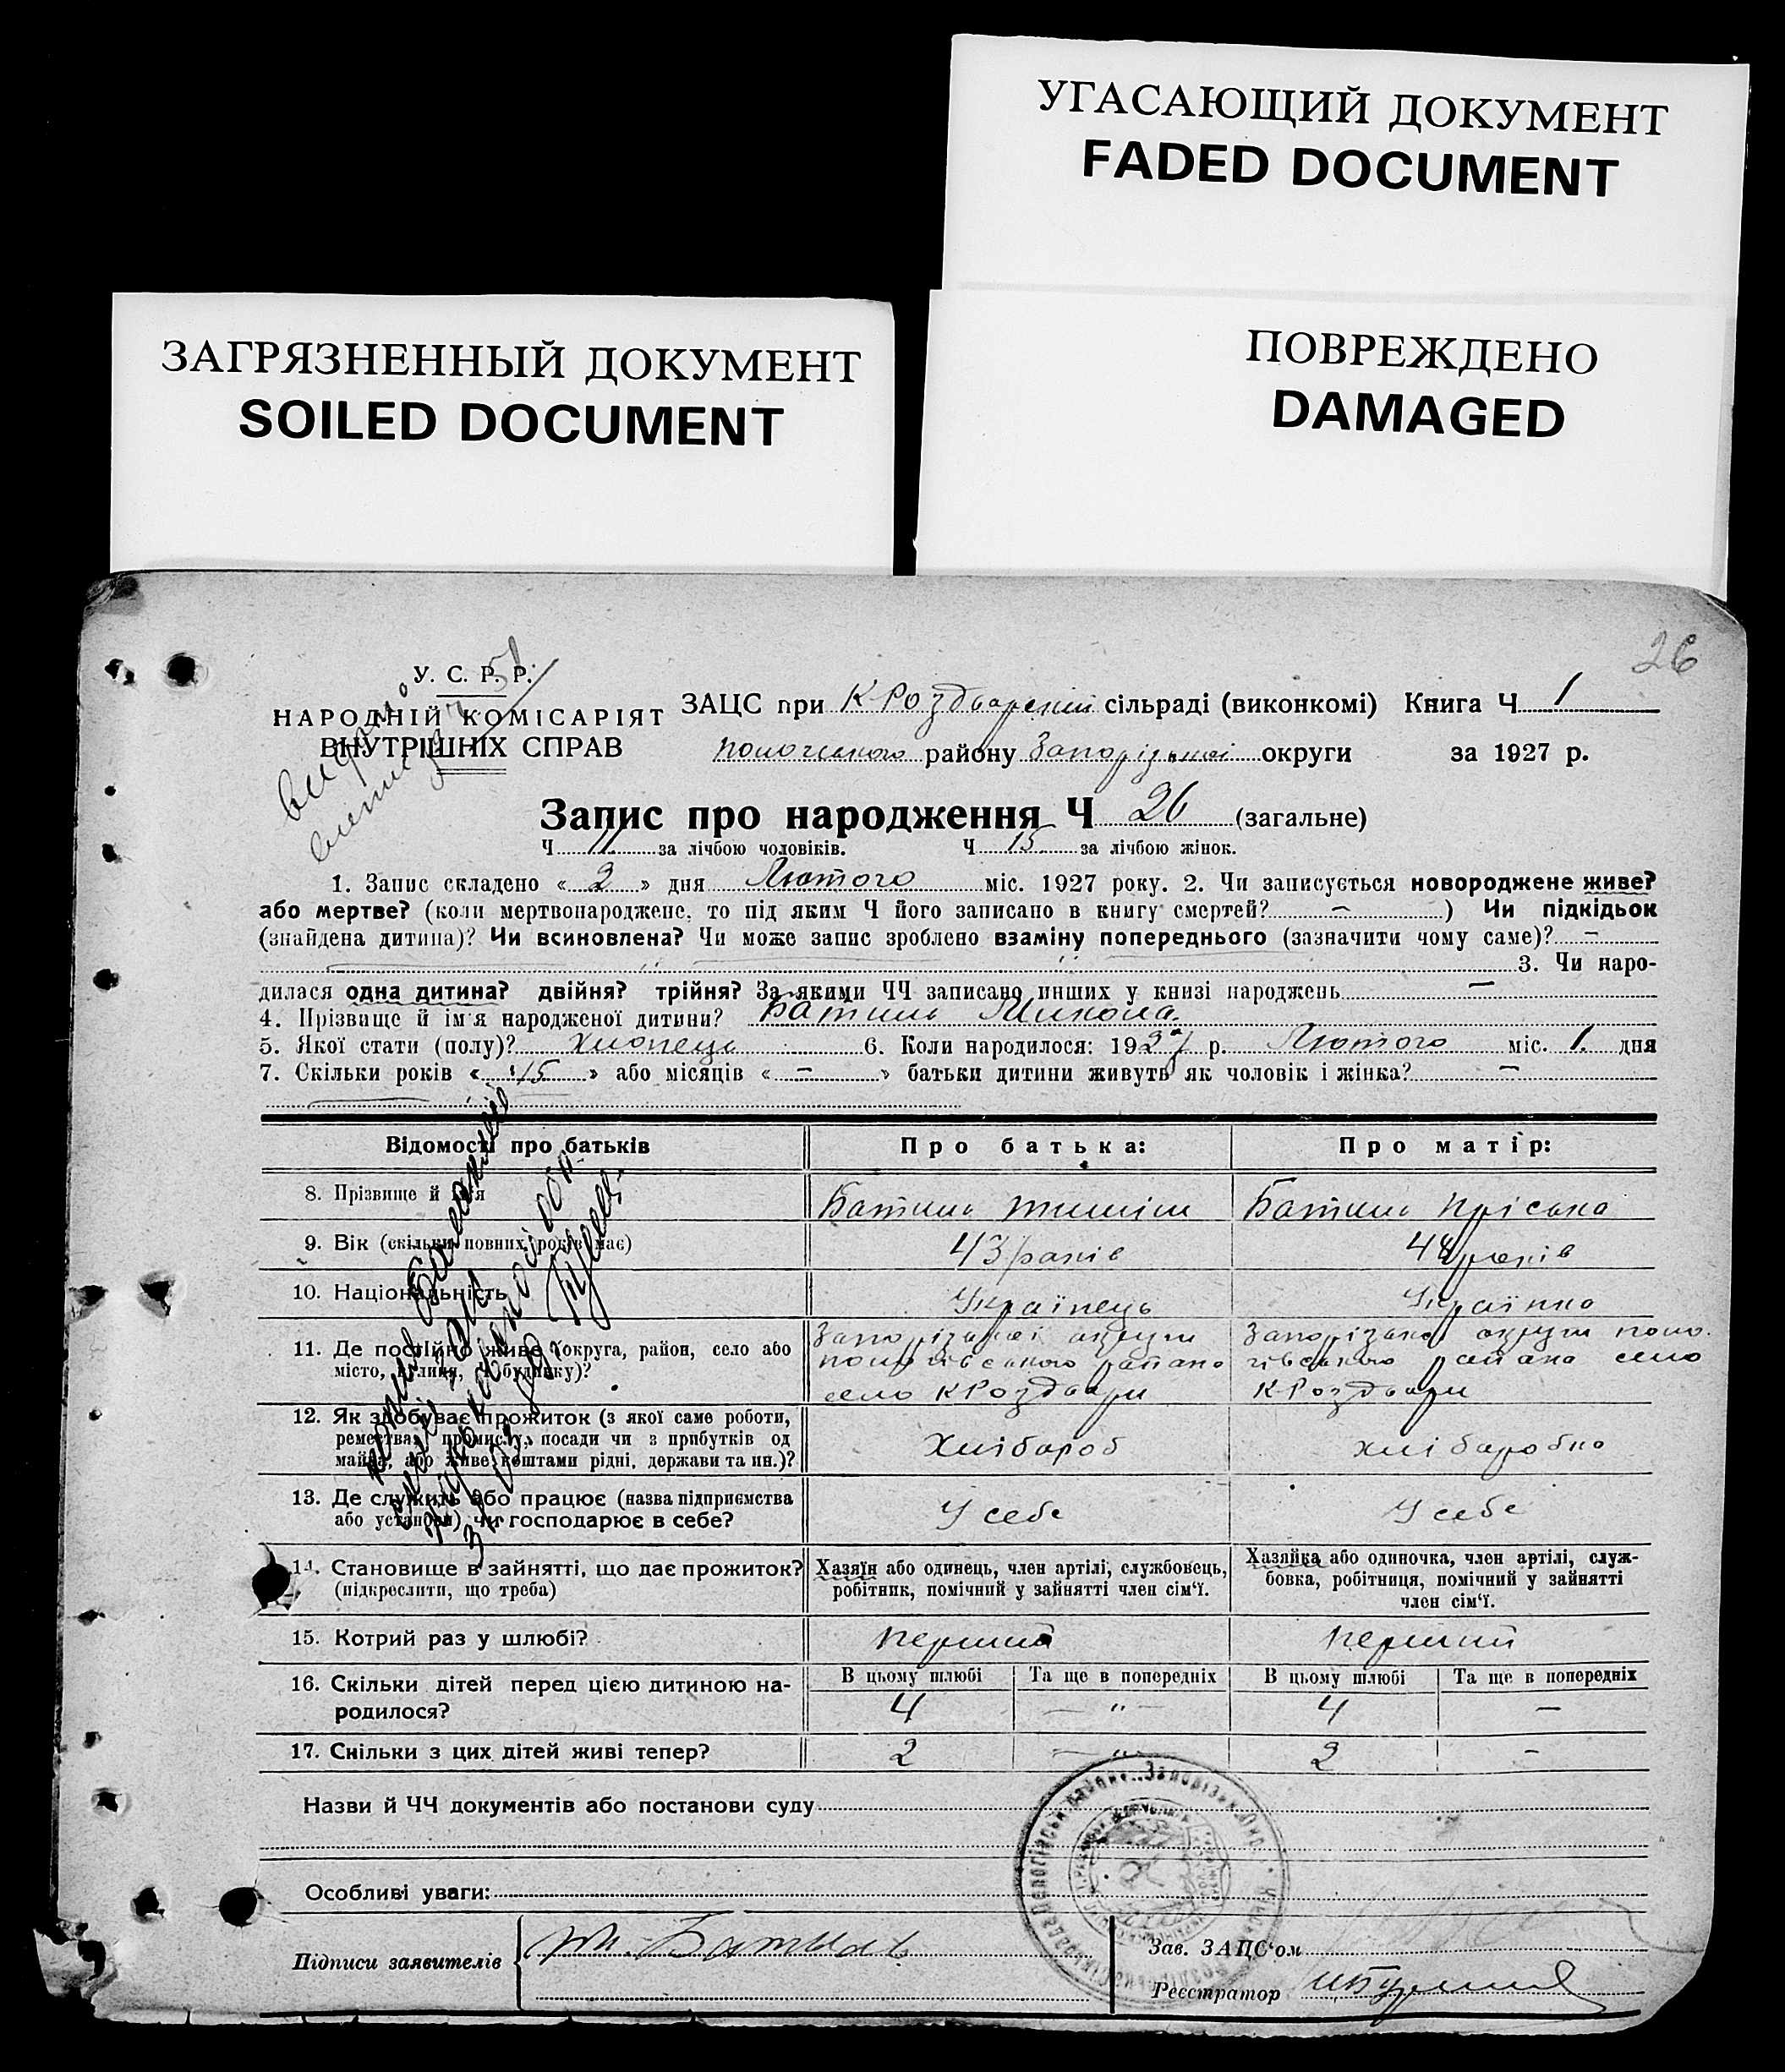 УГАСАЮЩИЙ ДОКУМЕНТ
FADED DOCUMENT
ЗАГРЯЗНЕННЫЙ ДОКУМЕНТ
SOILED DOCUMENT
ПОВРЕЖДЕНО
DAMAGED
26
У. С. Р. Р.
НАРОДНІЙ КОМІСАРІЯТ
ВНУТРІШНІХ СПРАВ
ЗАЦС при К Роздварский сільраді (виконкомі) Книга Ч 1
району Запорізької округи за 1927 р.
Запис про народження Ч 26 (загальне)
Ч 11 за лічбою чоловіків. Ч 15 за лічбою жінок.
1. Запис складено « 2 » дня Лютого міс. 1927 року. 2. Чи записується новороджене живе?
або мертве? (коли мертвонароджене, то під яким Ч його записано в книгу смертей? — ) Чи підкідьок
(знайдена дитина)? Чи всиновлена? Чи може запис зроблено взаміну попереднього (зазначити чому саме)? —
3. Чи наро-
дилася одна дитина? двійня? трійня? За якими ЧЧ записано инших у книзі народжень —
4. Прізвище й ім'я народженої дитини? Батиль Микола.
5. Якої стати (полу)? хлопець 6. Коли народилося: 1927 р. Лютого міс. 1. дня
7. Скільки років « 15 » або місяців « — » батьки дитини живуть як чоловік і жінка? —
Відомості про батьків Про батька: Про матір:
8. Прізвище й ім'я Батиль Тиміш Батиль Пріська
9. Вік (скільки повних років має) 43 років 42 років
10. Національність Українець Українка
11. Де постійно живе (округа, район, село або
місто, вулиця, Ч будинку)?
Запорізької округи
пологівського района
село К Роздвари
Запорізької округи поло-
гівського района село
К Роздвари
12. Як здобуває прожиток (з якої саме роботи,
ремества, промислу, посади чи з прибутків од
майна, або живе коштами рідні, держави та ин.)?
Хлібороб хліборобка
13. Де служить або працює (назва підприємства
або установи) чи господарює в себе?
У себе У себе
14. Становище в зайнятті, що дає прожиток?
(підкреслити, що треба)
Хазяїн або одинець, член артілі, службовець,
робітник, помічний у зайнятті член сім'ї.
Хазяйка або одиночка, член артілі, служ-
бовка, робітниця, помічний у зайнятті
член сім'ї.
15. Котрий раз у шлюбі? перший перший
16. Скільки дітей перед цією дитиною на-
родилося?
В цьому шлюбі Та ще в попередніх В цьому шлюбі Та ще в попередніх
4 — " — 4 —
17. Скільки з цих дітей живі тепер? 2 — " — 2 —
Назви й ЧЧ документів або постанови суду
Особливі уваги:
Підписи заявителів Батиль
Зав. ЗАЦС'ом
Реєстратор